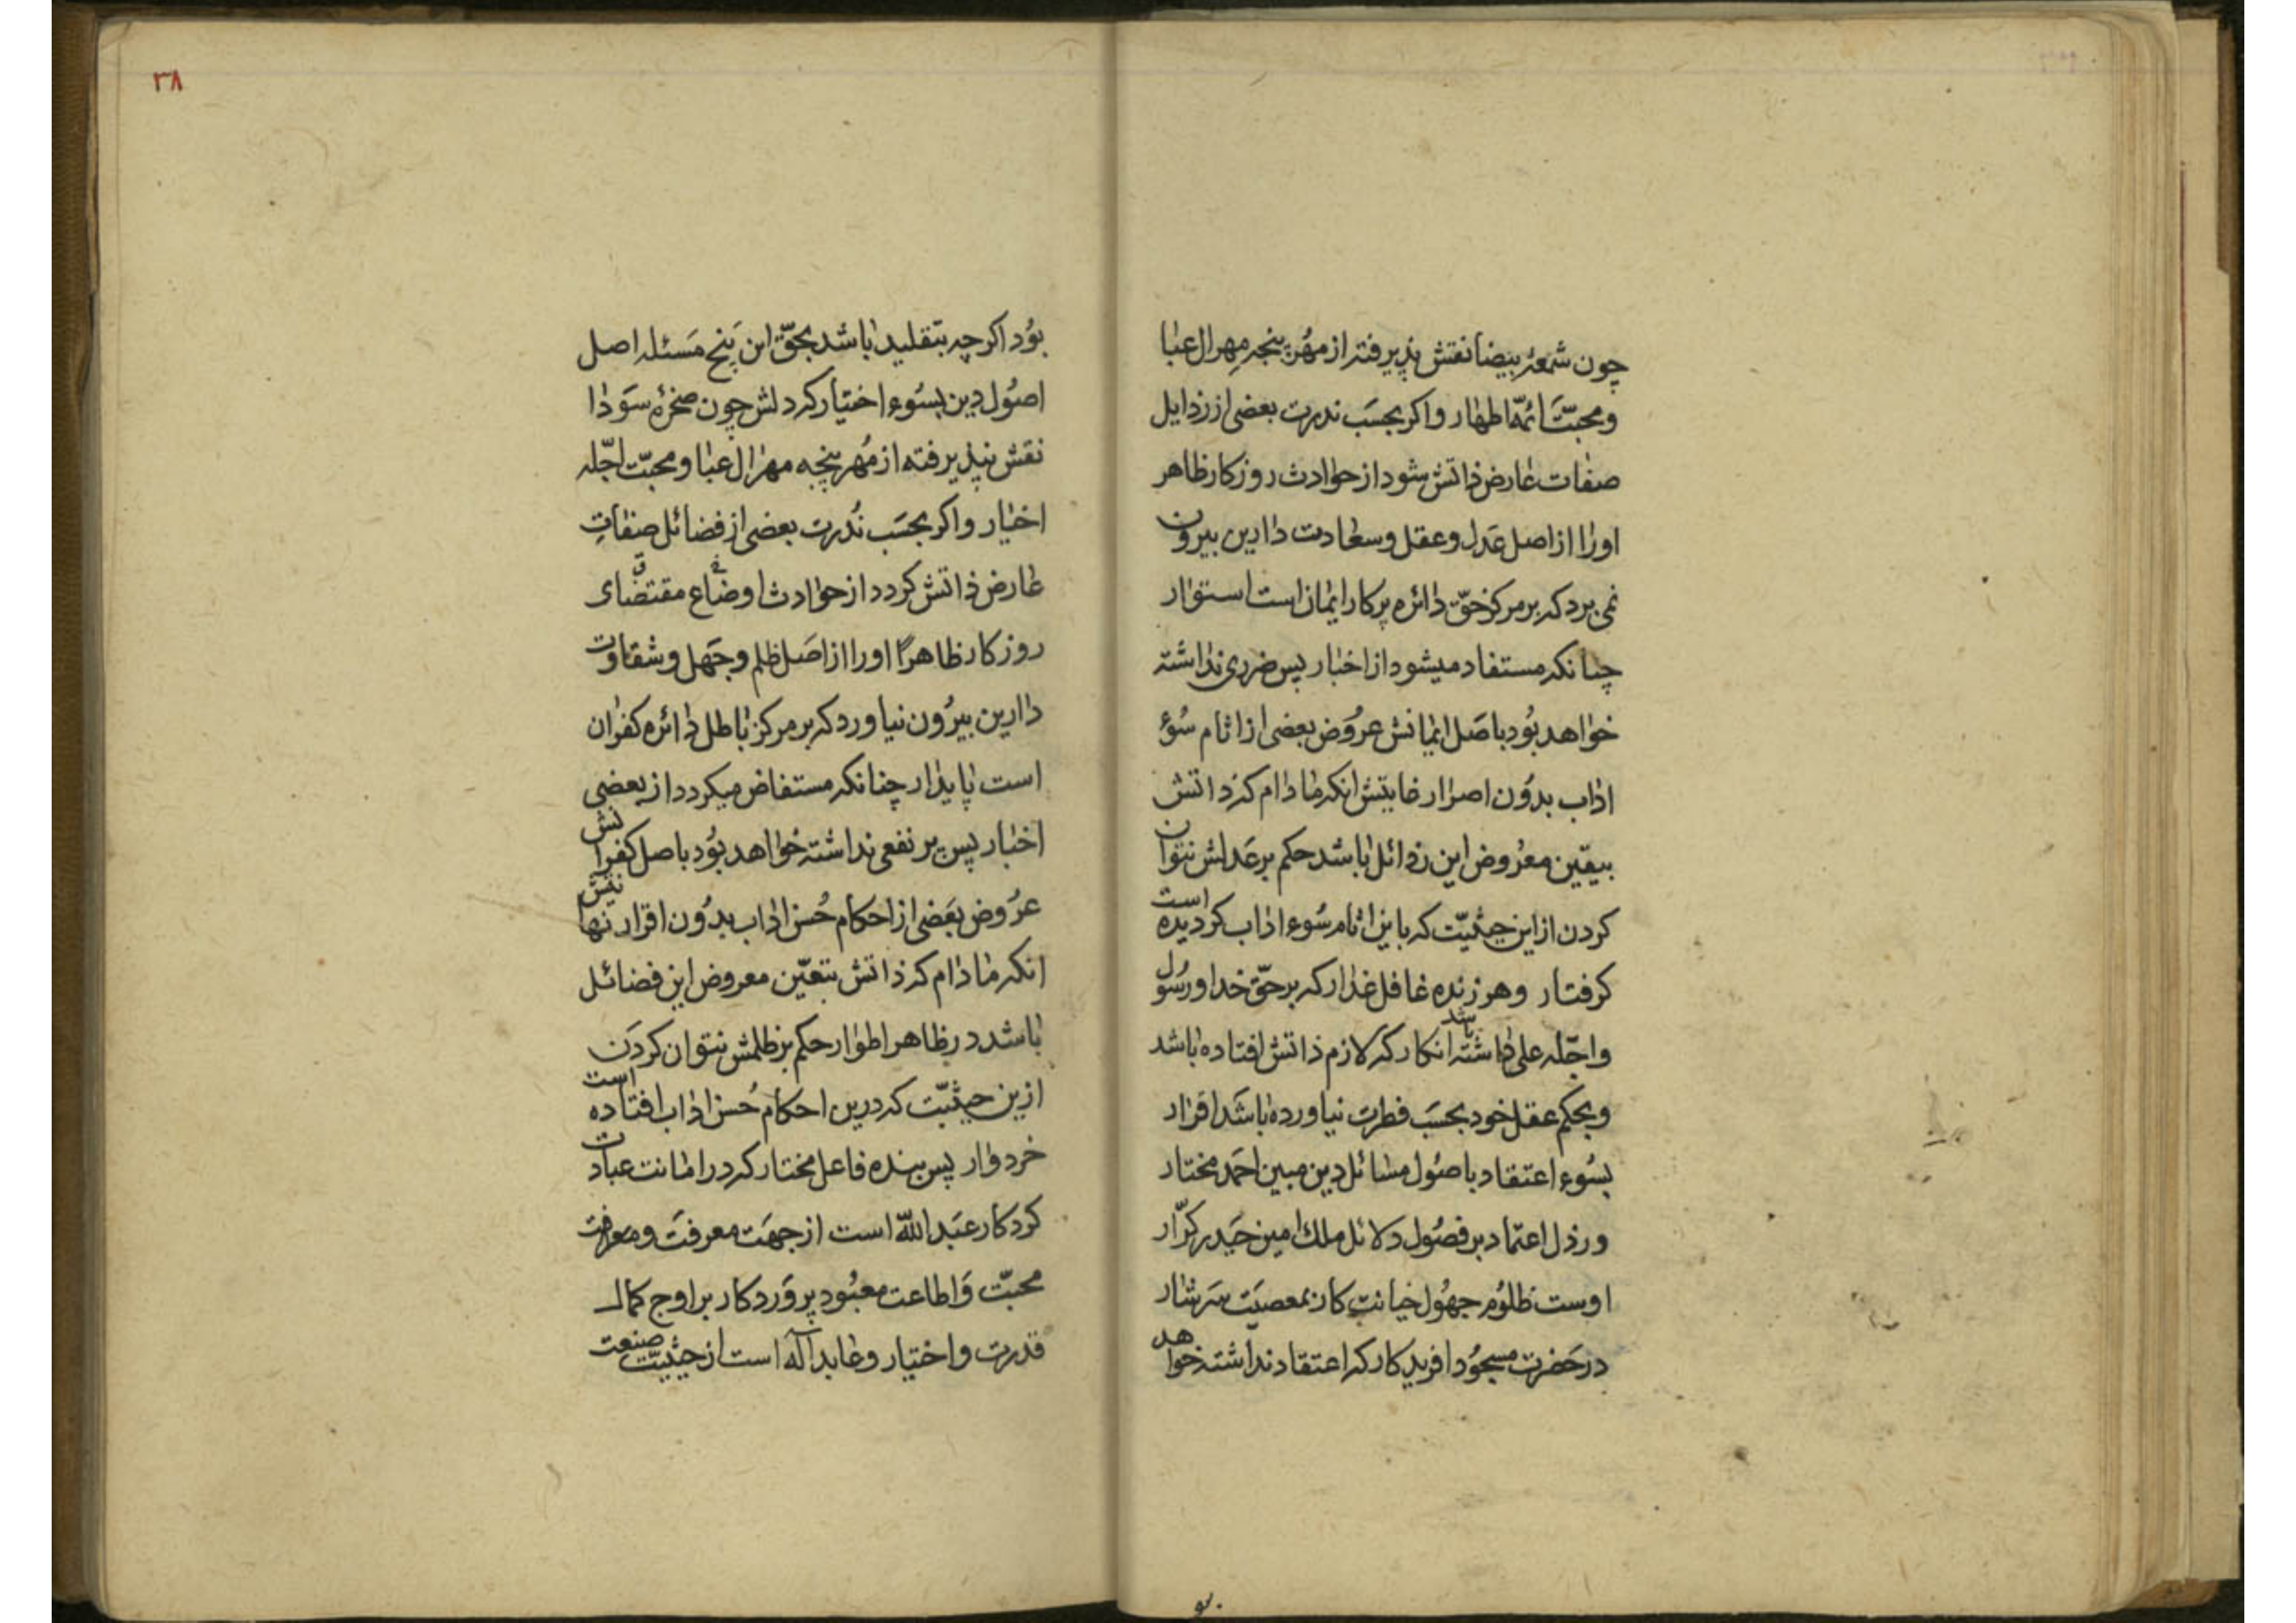 چون شمعهٔ بیضا نقش پذیرفته از مهر پنجهٔ مهر ال عبا
و محبّت ائمّه اطهار و اکر بحسَب ندرت بعضی از رذایل
صفات عارض ذاتش شود از حوادث روزکار ظاهر
اورا از اصل عَدل و عقل و سعادت دارین بیرون
نمی برد که بر مرکز حقّ دائره پرکار ایمان است استوار
چنانکه مستفاد میشود از اخبار پس ضرری نداشته
خواهد بُود باصَل ایمانش عرُوض بعضی از اثام سُوءِ
اداب بدوُن اصرار غایتش انکه مادام که ذاتش
بیقین معرُوض این رذائل باشد حکم بر عَدلش نتوان
کردن از این حیثیّت که باین اثام سُوء اداب کردیده است
کرفتار و هر زنده غافل غدار که بر حقّ خدا و رسُول
و اجّله علی داشته باشد انکار که لازم ذاتش افتاده باشد
و بحکم عقل خود بحسَب فطرت نیاورده باشد اقرار
بسُوء اعتقاد باصُول مسائل دین مبین احمَد مختار
و رذل اعتماد بر فصُول دلائل ملك امین حَیدر کرّار
اوست ظلُوم جهُول خیانت کار بمعصیَت سَرشار
در حَضرت مسجُود افریدکار که اعتقاد نداشته خواهد
بو
۳۸
بوُد اکرچه بتقلید باشد بحقّ این پَنج مَسئله اصل
اصُول دین بسُوء اختیار که دلش چون صخرهٔ سَودا
نقش نپذیرفته از مُهر پنجه مهر ال عبا و محبّت اجّله
اخیار و اکر بحسَب نُدرت بعضی از فضائل صفاتِ
عارض ذاتش کردد از حوادث اوضاع مقتضای
روزکار ظاهرًا اورا از اصَل ظلم و جَهل و شقاوت
دارین بیرُون نیاورد که بر مرکز باطل دائره کفران
است پایدار چنانکه مستفاض میکردد از بعضی
اخبار پس بر نفعی نداشته خواهد بُود باصل کفرانش
عرُوض بعَضی از احکام حُسن اداب بدُون اقرار نهایتش
انکه مادام که ذاتش بتعیّن معروض این فضائل
باشد در ظاهر اطوار حکم بر ظلمش نتوان کردَن
ازین حیثیّت که درین احکام حُسن اداب افتاده است
خردوار پس بنده فاعل مختار که در امانت عبادت
کردکار عبَد اللّه است از جهَت معرفَت و معرفت
محبّت وَ اطاعت معبُود پروَردکار بر اوج کمال
قدرت و اختیار و عابد آله است از حیثیّت صنعت